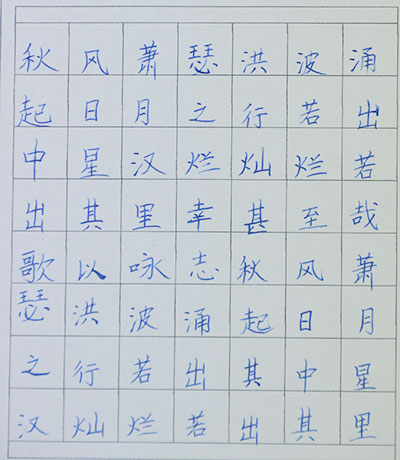 秋风萧瑟洪波涌
起日月之行若出
中星汉烂灿烂若
出其里幸甚至哉
歌以咏志秋风萧
瑟洪波涌起日月
之行若出其中星
汉灿烂若出其里